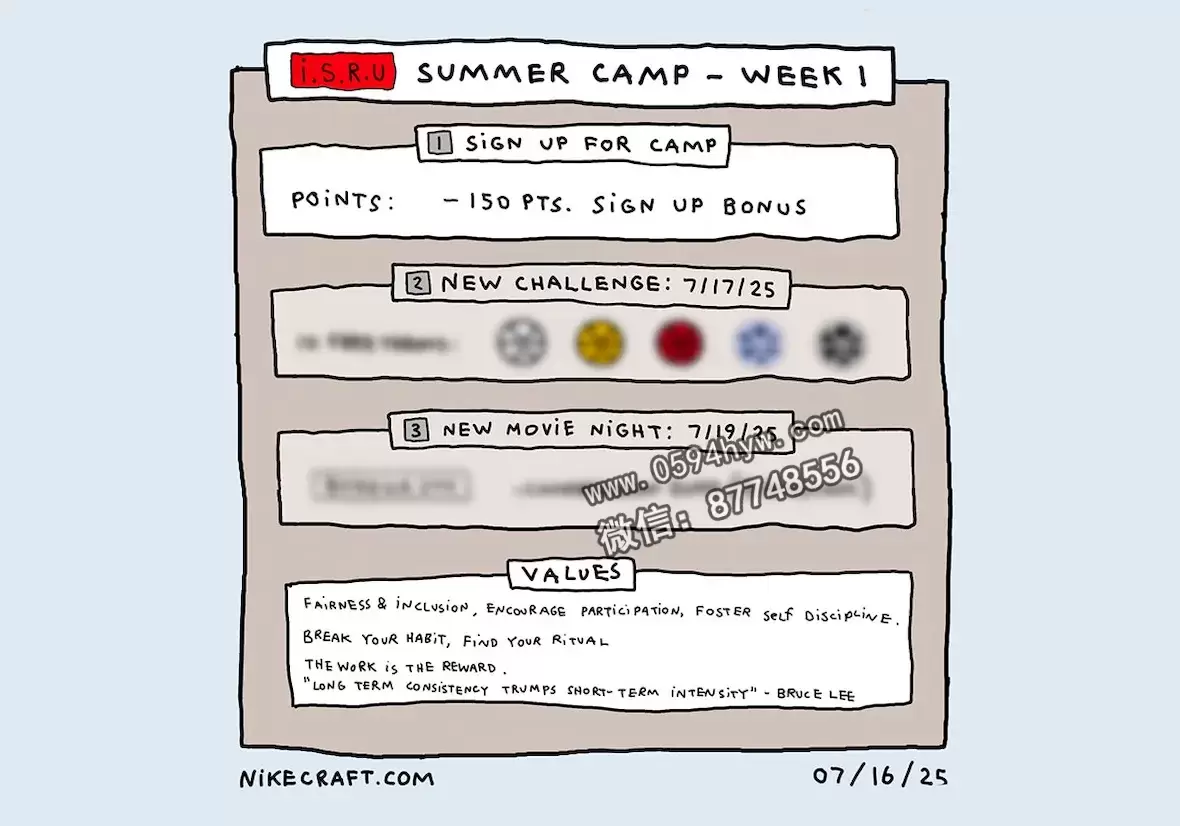 i.S.R.U SUMMER CAMP - WEEK 1
1 SiGN UP FOR CAMP
POiNTS: - 150 PTS. SiGN UP BONUS
2 NEW CHALLENGE: 7/17/25
3 NEW MOViE NiGHT: 7/19/25
www.0594hyw.com
微信：87748556
VALUES
FAiRNESS & iNCLUSiON, ENCOURAGE PARTiCiPATiON, FOSTER Self DiSCiPLiNE.
BREAK YOUR HABiT, FiND YOUR RiTUAL
THE WORK iS THE REWARD.
"LONG TERM CONSiSTENCY TRUMPS SHORT-TERM iNTENSiTY" - BRUCE LEE
NiKECRAFT.COM
07/16/25